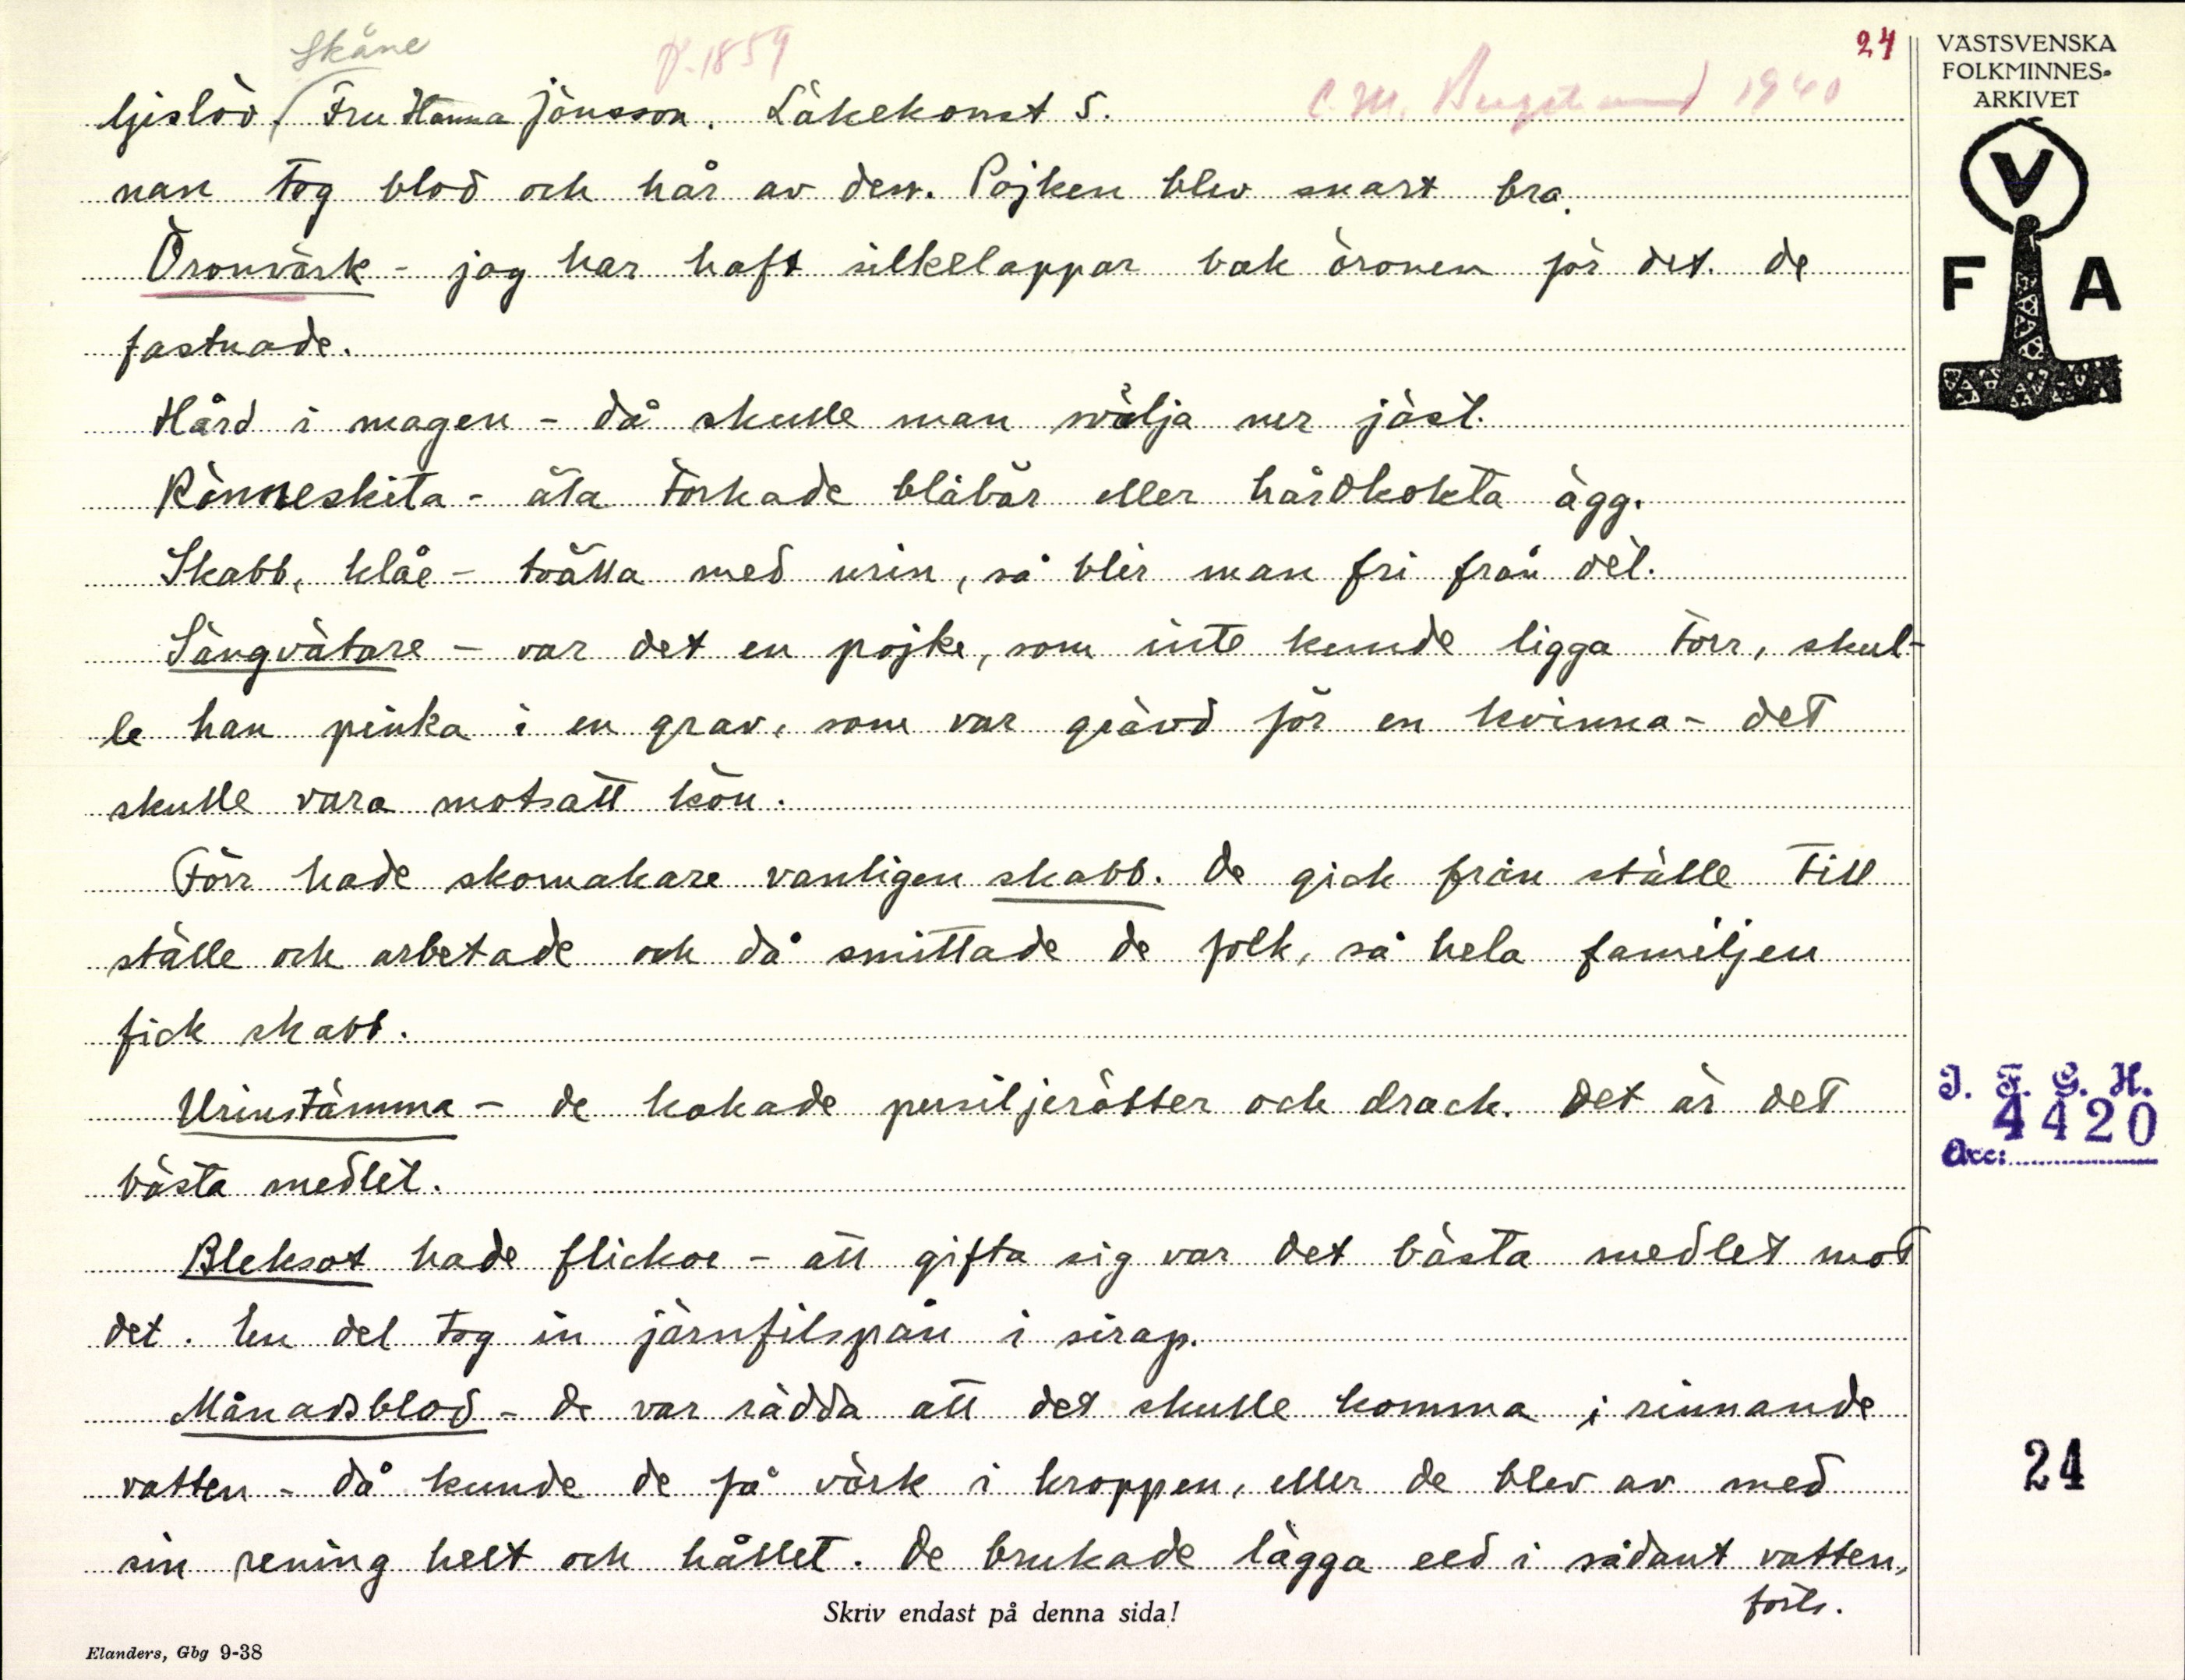 Skåne
f. 1859
C.M. Bergstrand 1940
24
Gislöv. Fru Hanna Jönsson. Läkekonst 5.
nan tog blod och hår av den. Pojken blev snart bra.
Öronvärk - jag har haft silkelappar bak öronen för det. de
fastnade.
Hård i magen - då skulle man svälja ner jäst.
Ränneskita - äta torkade blåbär eller hårdkokta ägg.
Skabb, klåe - tvätta med urin, så blir man fri från det.
Sängvätare - var det en pojke, som inte kunde ligga torr, skul-
le han pinka i en grav, som var grävd för en kvinna - det
skulle vara motsatt kön.
Förr hade skomakare vanligen skabb. De gick från ställe till
ställe och arbetade och då smittade de folk, så hela familjen
fick skabb.
Urinstämma - de kokade persiljerötter och drack. Det är det
bästa medlet.
Bleksot hade flickor - att gifta sig var det bästa medlet mot
det. En del tog in järnfilspån i sirap.
Månadsblod - de var rädda att det skulle komma i rinnande
vatten - då kunde de få värk i kroppen, eller de blev av med
sin rening helt och hållet. De brukade lägga eld i sådant vatten,
forts.
Skriv endast på denna sida!
Elanders, Gbg 9-38
VÄSTSVENSKA
FOLKMINNES-
ARKIVET
V
F A
I. F. G. H.
4420
Acc:
24